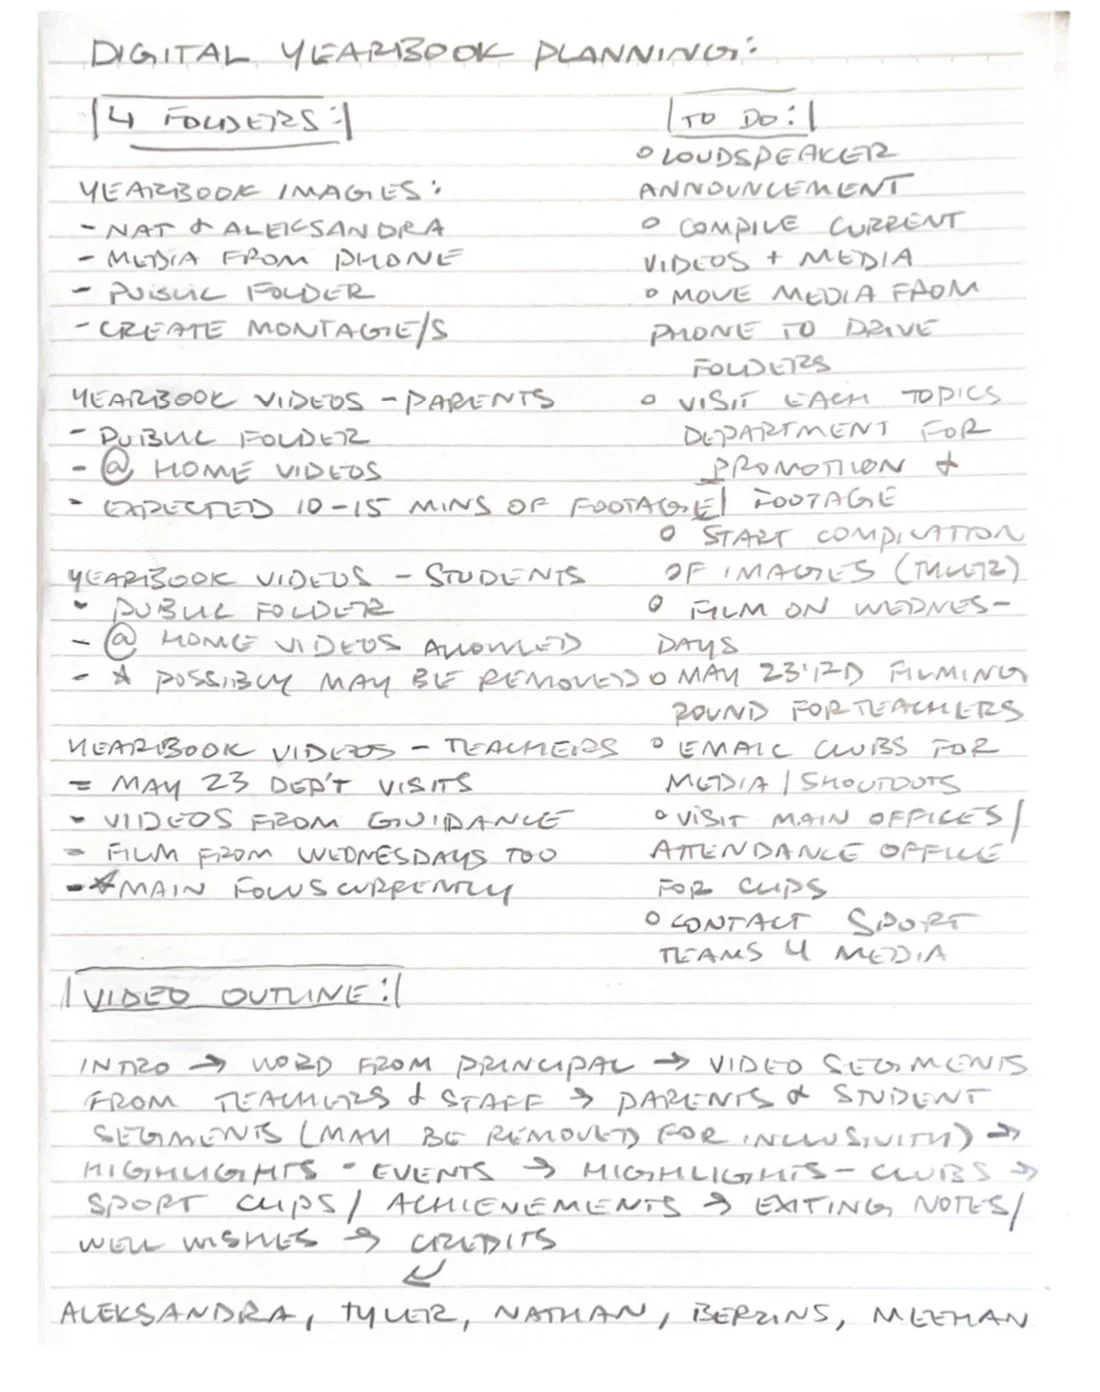 DIGITAL YEARBOOK PLANNING:
4 FOLDERS:
YEARBOOK IMAGES:
- NAT & ALEKSANDRA
- MEDIA FROM PHONE
- PUBLIC FOLDER
- CREATE MONTAGE/S
YEARBOOK VIDEOS - PARENTS
- PUBLIC FOLDER
- @ HOME VIDEOS
- EXPECTED 10-15 MINS OF FOOTAGE
YEARBOOK VIDEOS - STUDENTS
- PUBLIC FOLDER
- @ HOME VIDEOS ALLOWED
- * POSSIBLY MAY BE REMOVED
YEARBOOK VIDEOS - TEACHERS
- MAY 23 DEP'T VISITS
- VIDEOS FROM GUIDANCE
- FILM FROM WEDNESDAYS TOO
- *MAIN FOCUS CURRENTLY
TO DO:
o LOUDSPEAKER
ANNOUNCEMENT
o COMPILE CURRENT
VIDEOS + MEDIA
o MOVE MEDIA FROM
PHONE TO DRIVE
FOLDERS
o VISIT EACH TOPICS
DEPARTMENT FOR
PROMOTION &
FOOTAGE
o START COMPILATION
OF IMAGES (TYLER)
o FILM ON WEDNES-
DAYS
o MAY 23'RD FILMING
ROUND FOR TEACHERS
o EMAIL CLUBS FOR
MEDIA / SHOUTOUTS
o VISIT MAIN OFFICES/
ATTENDANCE OFFICE
FOR CLIPS
o CONTACT SPORT
TEAMS 4 MEDIA
VIDEO OUTLINE:
INTRO → WORD FROM PRINCIPAL → VIDEO SEGMENTS
FROM TEACHERS & STAFF → PARENTS & STUDENT
SEGMENTS (MAY BE REMOVED FOR INCLUSIVITY) →
HIGHLIGHTS - EVENTS → HIGHLIGHTS - CLUBS →
SPORT CLIPS / ACHIEVEMENTS → EXITING NOTES/
WELL WISHES → CREDITS
↙
ALEKSANDRA, TYLER, NATHAN, BERZINS, MEEHAN